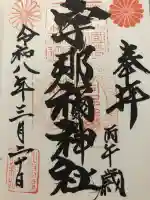 奉拝
丙午歳
宇那禰神社
令和八年三月二十日